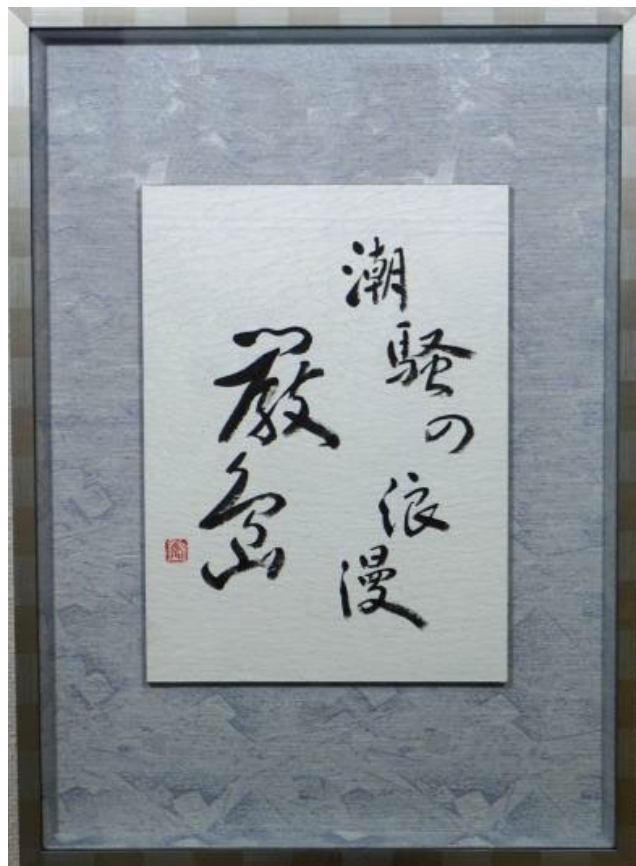 潮騒の浪漫
厳島